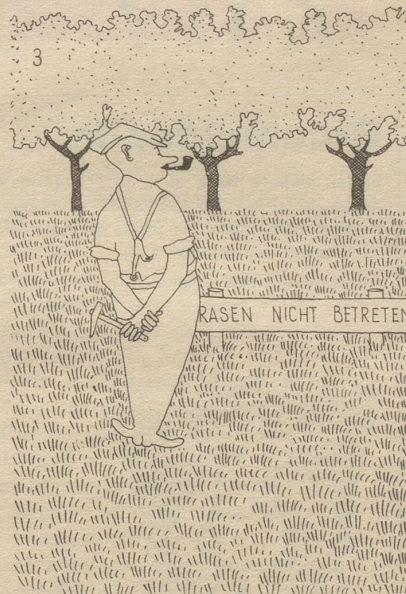 3
RASEN NICHT BETRETEN